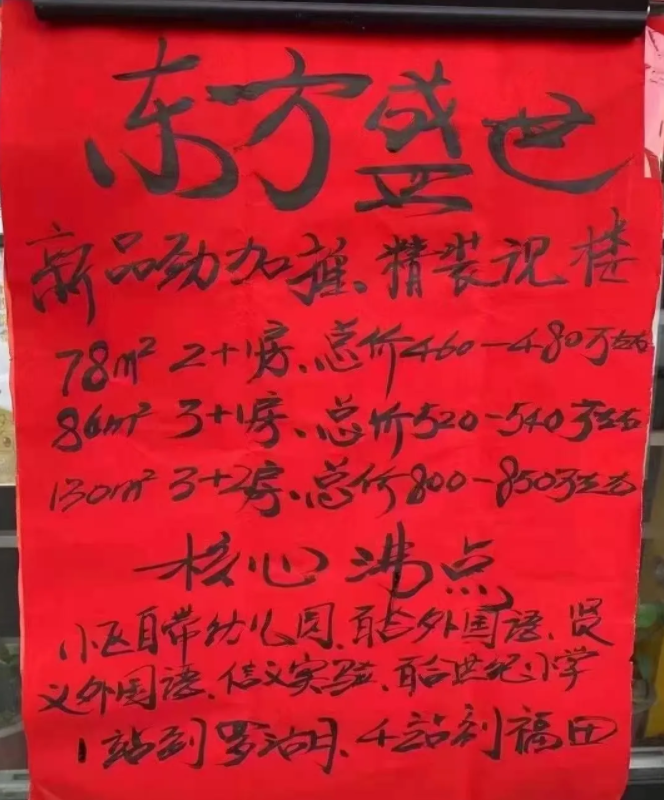 东方盛世
新品劲加推、精装现楼
78m² 2+1房、总价460-480万左右
86m² 3+1房、总价520-540万左右
130m² 3+2房、总价800-850万左右
核心沸点
小区自带幼儿园、百合外国语、贤
义外国语、信义实验、百合世纪小学
1站到罗湖、4站到福田